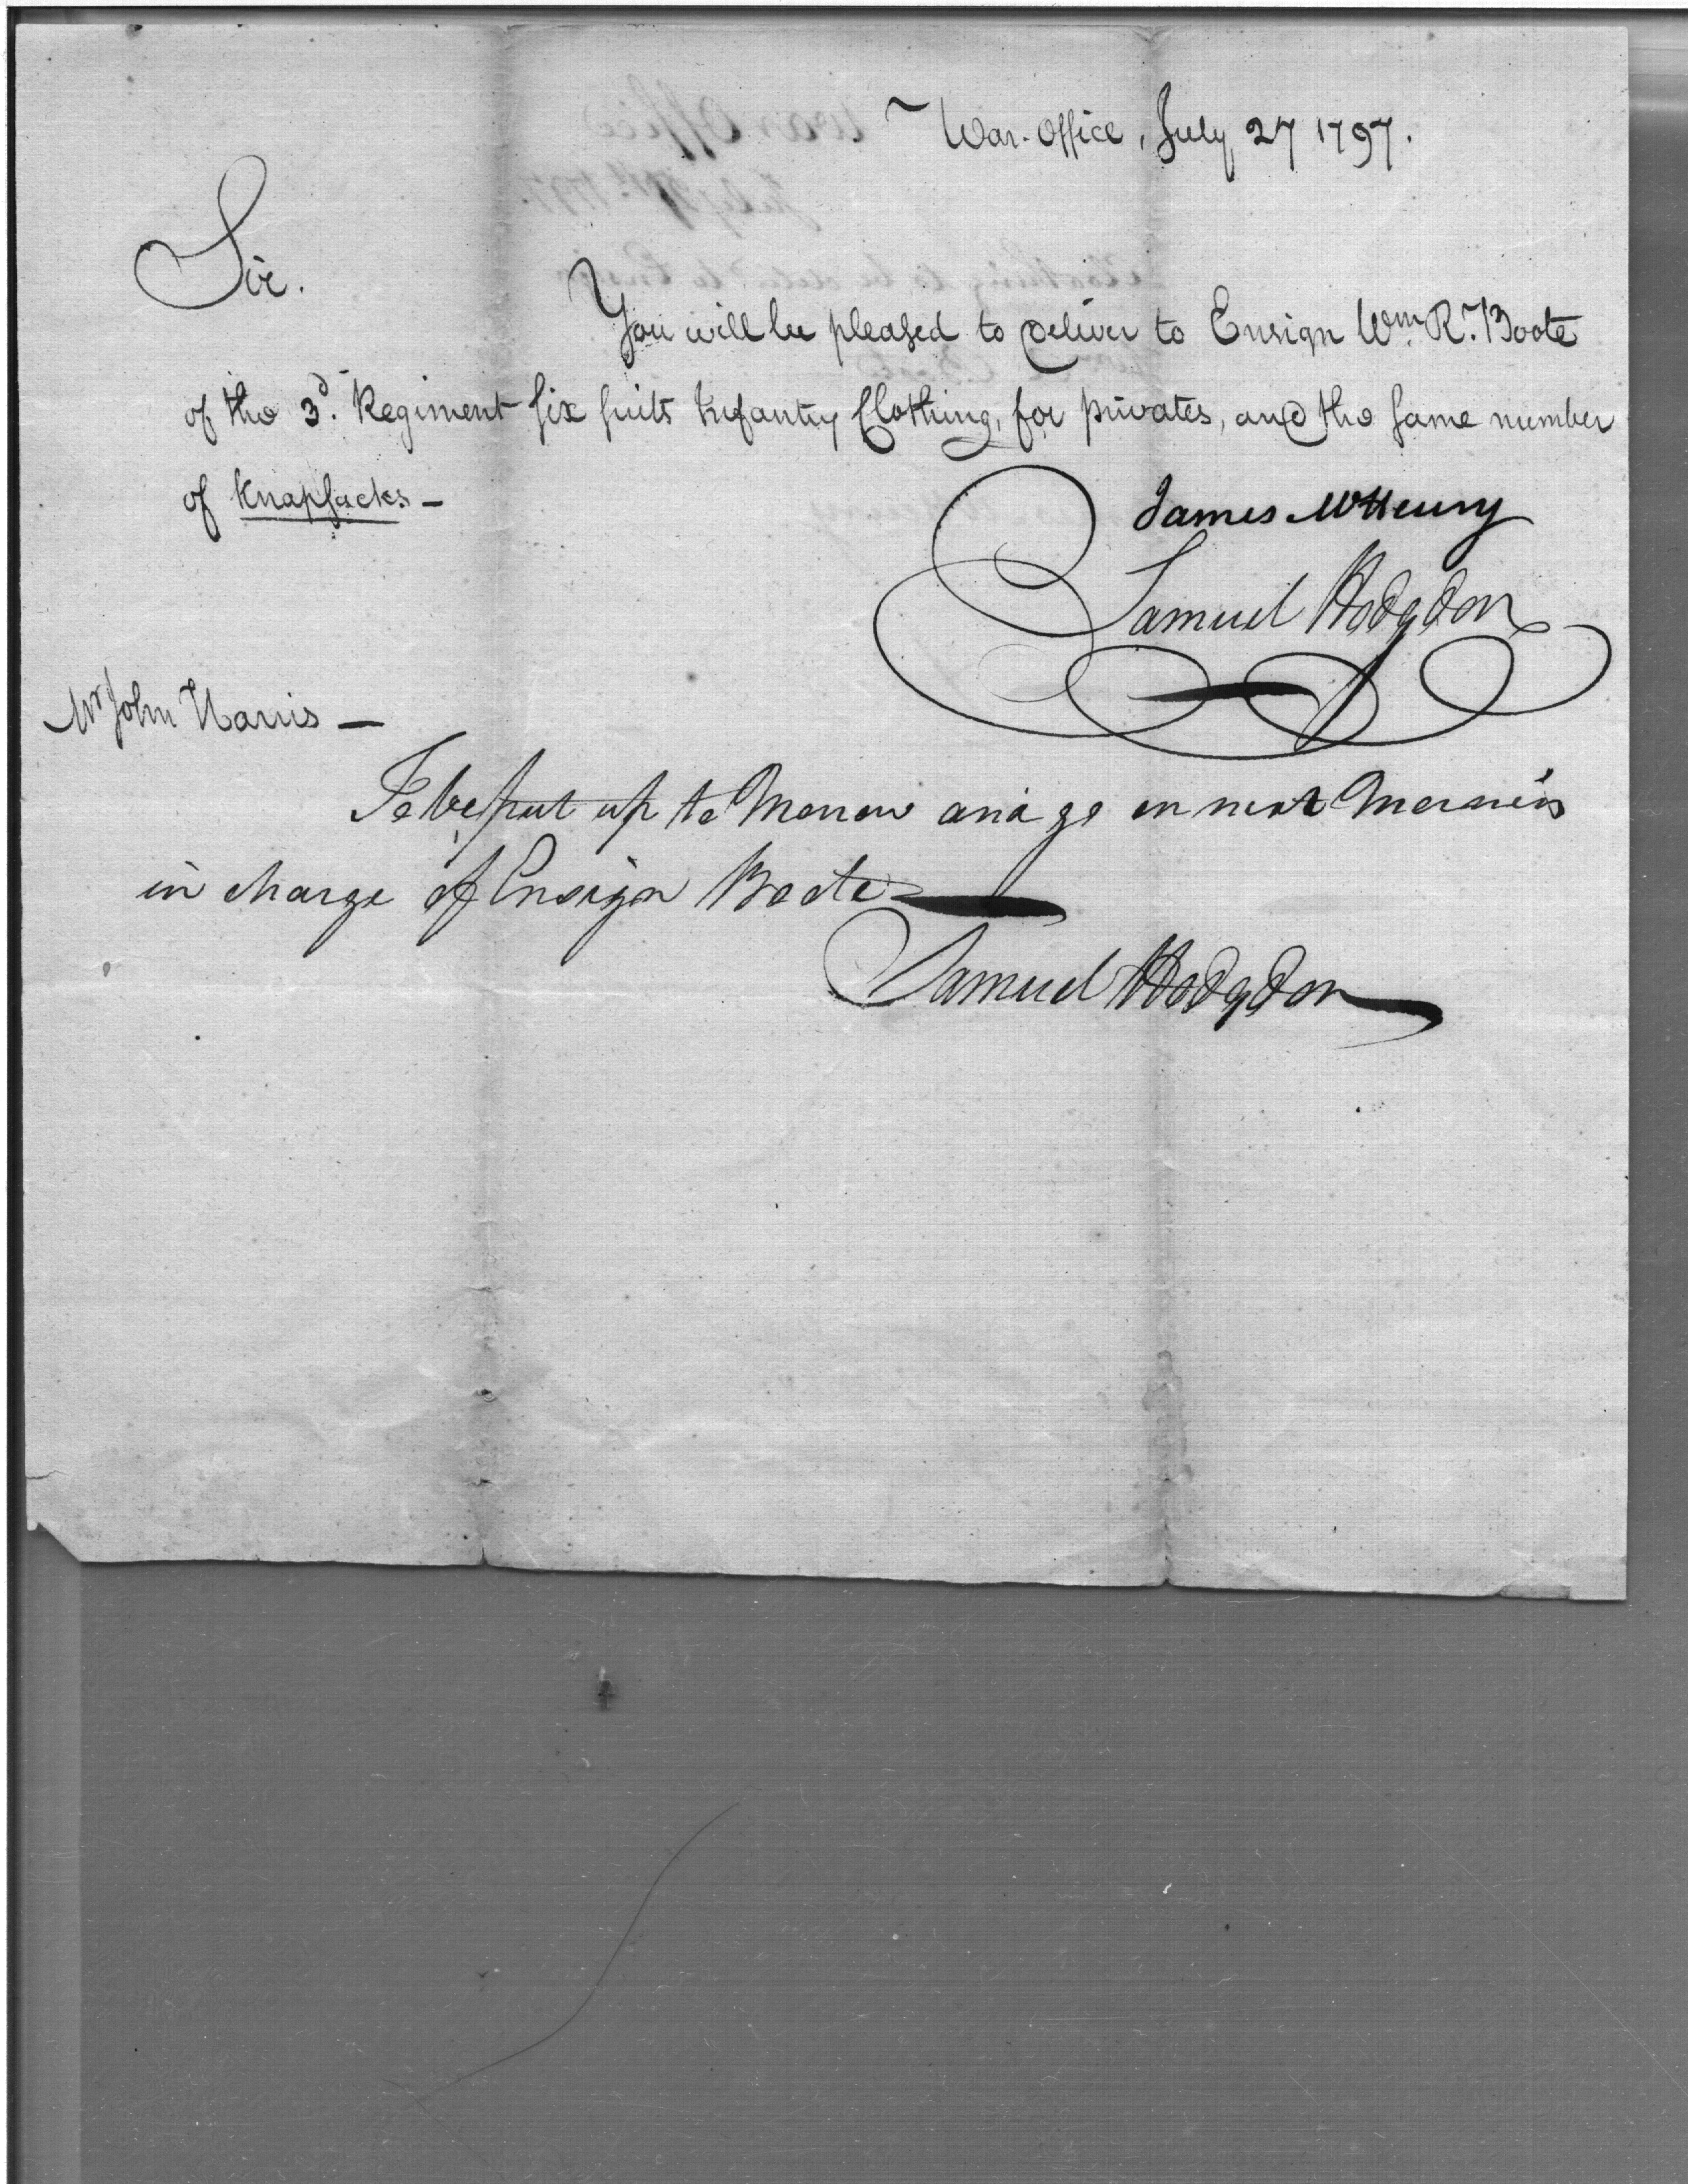 War-Office, July 27 1797.
Sir.
You will be pleased to deliver to Ensign Wm. R. Boote
of the 3d. Regiment six suits Infantry Clothing, for privates, and the same number
of Knapsacks –
James McHenry
Samuel Hodgdon
Mr John Harris –
To be put up to Morrow and go on next Morning
in charge of Ensign Boote
Samuel Hodgdon